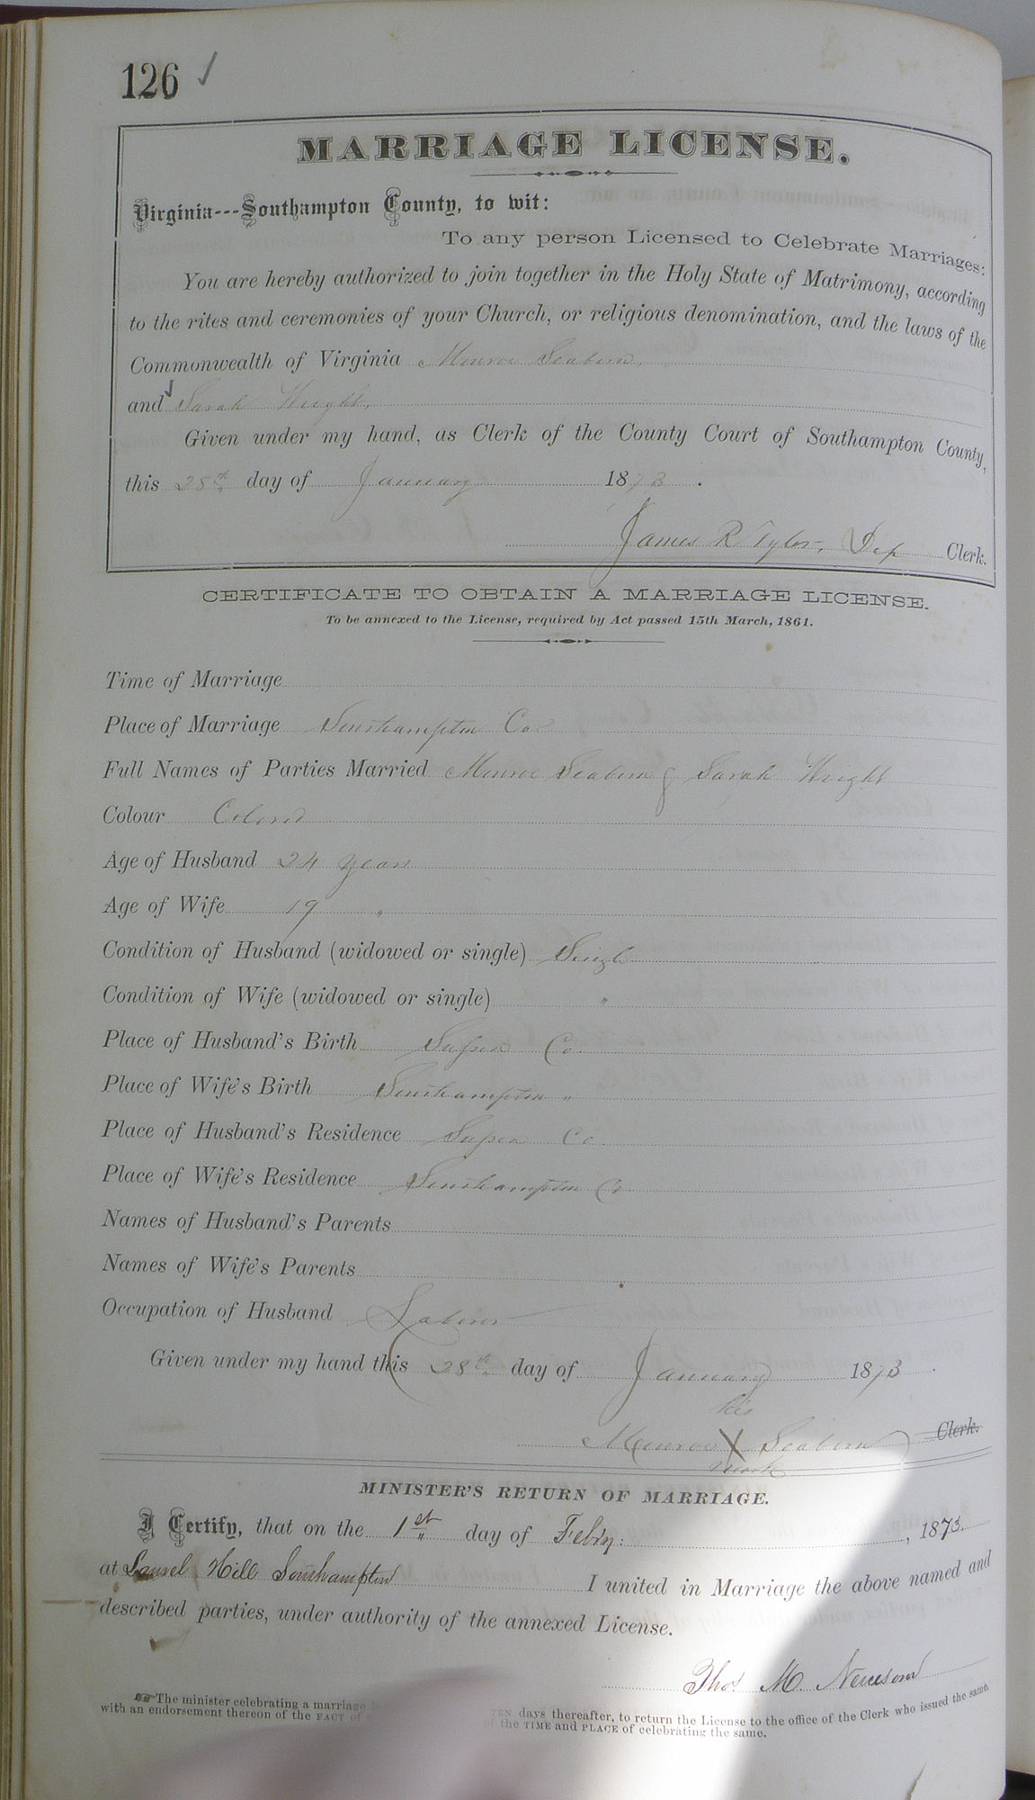 126 ✓
MARRIAGE LICENSE.
Virginia---Southampton County, to wit:
To any person Licensed to Celebrate Marriages:
You are hereby authorized to join together in the Holy State of Matrimony, according
to the rites and ceremonies of your Church, or religious denomination, and the laws of the
Commonwealth of Virginia Monroe Seaborn,
and Sarah Wright,
Given under my hand, as Clerk of the County Court of Southampton County,
this 28th day of January 1873.
James R Tyler, Dep Clerk.
CERTIFICATE TO OBTAIN A MARRIAGE LICENSE.
To be annexed to the License, required by Act passed 15th March, 1861.
Time of Marriage
Place of Marriage Southampton Co
Full Names of Parties Married Monroe Seaborn & Sarah Wright
Colour Colored
Age of Husband 24 years
Age of Wife 19 "
Condition of Husband (widowed or single) Single
Condition of Wife (widowed or single) "
Place of Husband's Birth Sussex Co.
Place of Wife's Birth Southampton "
Place of Husband's Residence Sussex Co.
Place of Wife's Residence Southampton Co
Names of Husband's Parents
Names of Wife's Parents
Occupation of Husband Laborer
Given under my hand this 28th day of January 1873.
his
Monroe X Seaborn Clerk.
mark
MINISTER'S RETURN OF MARRIAGE.
I Certify, that on the 1st day of Febry: , 1873.
at Laurel Hill Southampton I united in Marriage the above named and
described parties, under authority of the annexed License.
Thos M. Newsom
The minister celebrating a marriage TEN days thereafter, to return the License to the office of the Clerk who issued the same
with an endorsement thereon of the FACT of the TIME and PLACE of celebrating the same.